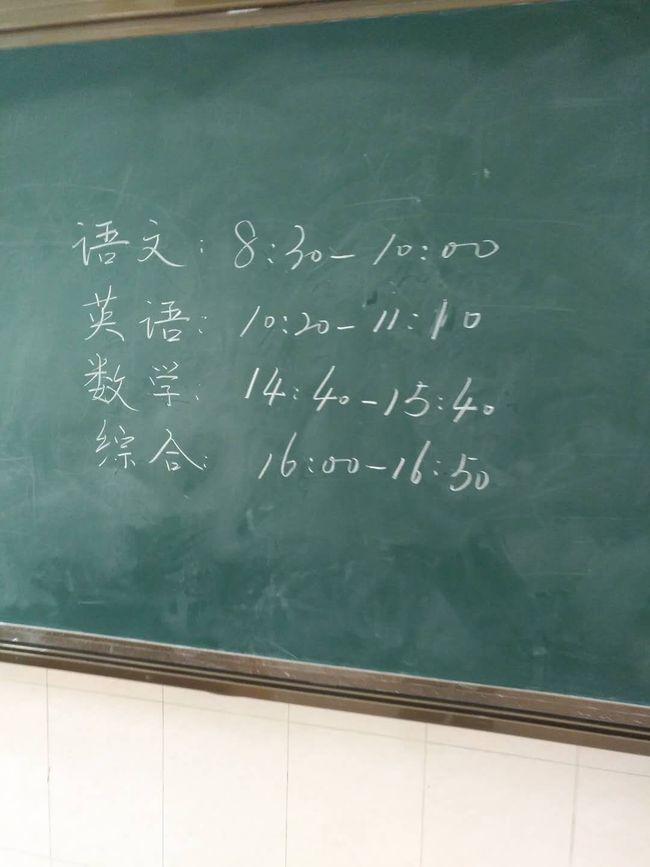 语文: 8:30-10:00
英语: 10:20-11:10
数学: 14:40-15:40
综合: 16:00-16:50